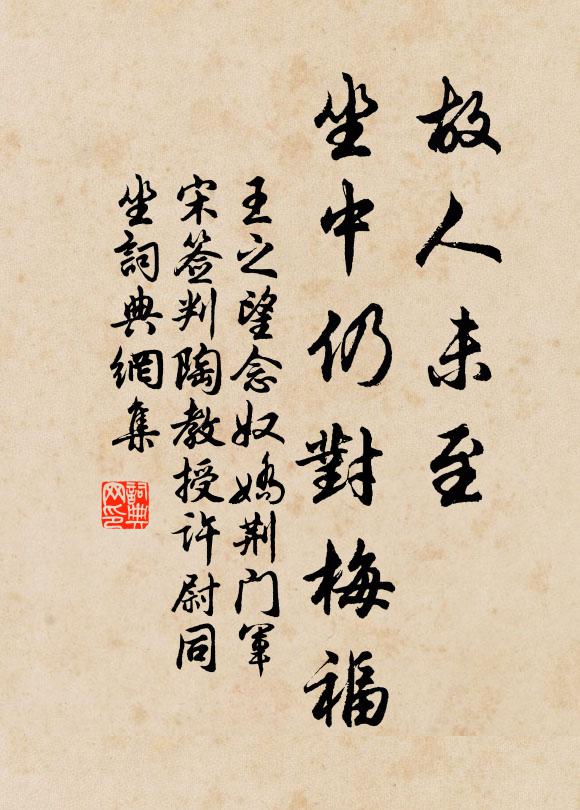 故人未至
坐中仍對梅福
王之望念奴嬌荆门軍
宋签判陶教授許尉同
坐詞典網集
詞典
网印